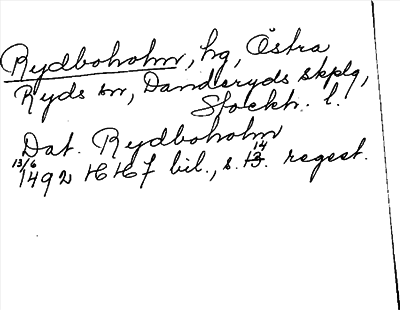 Rydboholm, hg, Östra
Ryds sn, Danderyds skplg,
Stockh. l.
Dat. Rydboholm
13/6 14
1492 HH f bil., s. 13. regest.